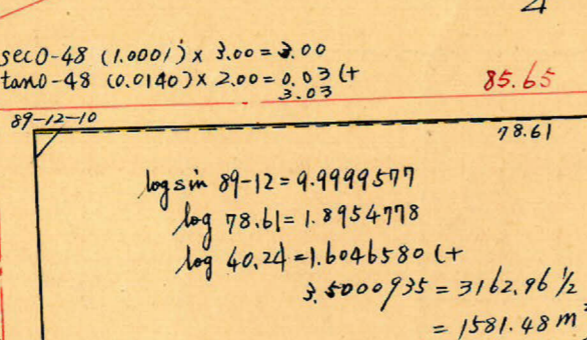 sec0-48 (1.0001) x 3.00 = 3.00
tan0-48 (0.0140) x 2.00 = 0.03 (+
3.03
85.65
89-12-10
78.61
log sin 89-12 = 9.9999577
log 78.61 = 1.8954778
log 40.24 = 1.6046580 (+
3.5000935 = 3162.96 1/2
= 1581.48 m